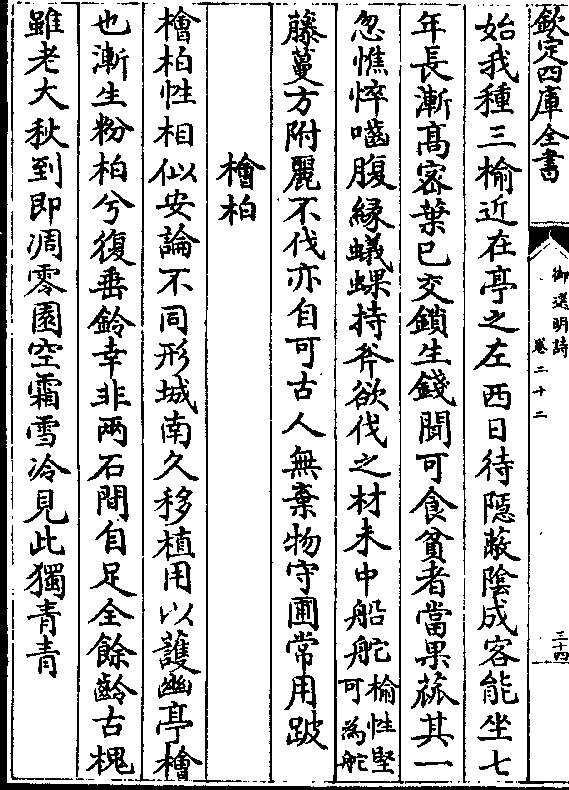 欽定四庫全書
御選明詩
卷二十二
三十四
始我種三榆近在亭之左西日待隱蔽陰成客能坐七
年長漸高密葉已交鎖生錢聞可食貧者當果蓏其一
忽憔悴嚙腹緣蟻蜾持斧欲伐之材未中船舵榆性堅
可為舵
藤蔓方附麗不伐亦自可古人無棄物守圃常用跛
檜柏
檜柏性相似安論不同形城南久移植用以護幽亭檜
也漸生粉柏兮復垂鈴幸非兩石間自足全餘齡古槐
雖老大秋到即凋零園空霜雪冷見此獨青青